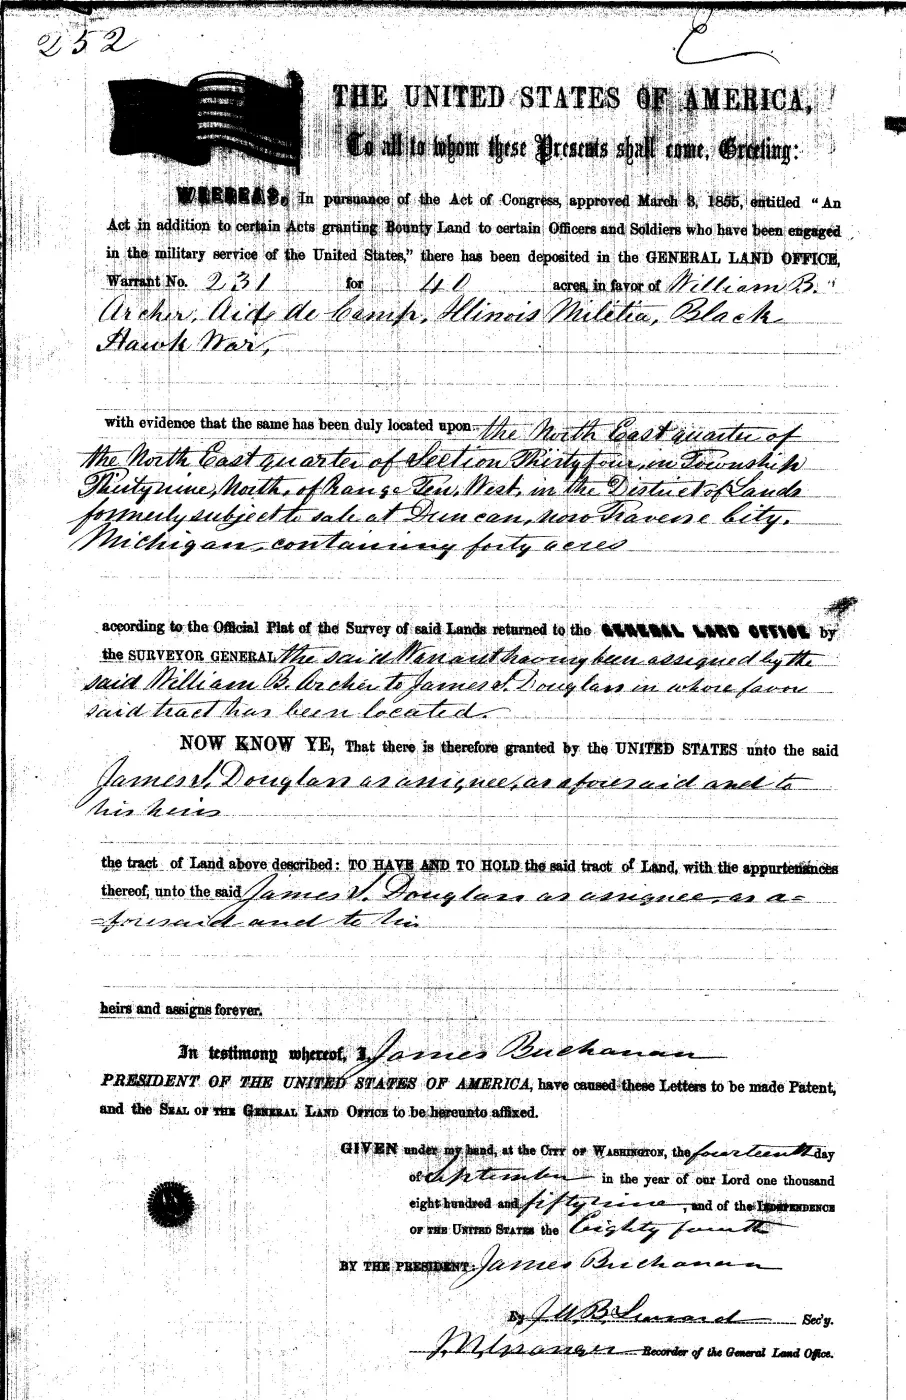 252
THE UNITED STATES OF AMERICA,
To all to whom these Presents shall come, Greeting:
WHEREAS, In pursuance of the Act of Congress, approved March 3, 1855, entitled "An
Act in addition to certain Acts granting Bounty Land to certain Officers and Soldiers who have been engaged
in the military service of the United States," there has been deposited in the GENERAL LAND OFFICE,
Warrant No. 231 for 40 acres, in favor of William B.
Archer, Aid de Camp, Illinois Militia, Black
Hawk War,
with evidence that the same has been duly located upon the North East quarter of
the North East quarter of Section Thirty four, in Township
Thirty nine, North, of Range Ten, West, in the District of Lands
formerly subject to sale at Duncan, now Traverse City,
Michigan, containing forty acres
according to the Official Plat of the Survey of said Lands returned to the GENERAL LAND OFFICE by
the SURVEYOR GENERAL the said Warrant having been assigned by the
said William B. Archer to James S. Douglass in whose favor
said tract has been located.
NOW KNOW YE, That there is therefore granted by the UNITED STATES unto the said
James S. Douglass as assignee, as aforesaid and to
his heirs
the tract of Land above described: TO HAVE AND TO HOLD the said tract of Land, with the appurtenances
thereof, unto the said James S. Douglass as assignee, as a=
=foresaid and to his
heirs and assigns forever.
In testimony whereof, I, James Buchanan
PRESIDENT OF THE UNITED STATES OF AMERICA, have caused these Letters to be made Patent,
and the SEAL OF THE GENERAL LAND OFFICE to be hereunto affixed.
GIVEN under my hand, at the CITY OF WASHINGTON, the fourteenth day
of September in the year of our Lord one thousand
eight hundred and fifty nine, and of the INDEPENDENCE
OF THE UNITED STATES the Eighty fourth
BY THE PRESIDENT: James Buchanan
By J. B. Leonard Sec'y.
J. N. Granger Recorder of the General Land Office.